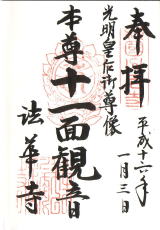 奉拝
平成十六年
一月三日
光明皇后御尊像
本尊十一面観音
法華寺